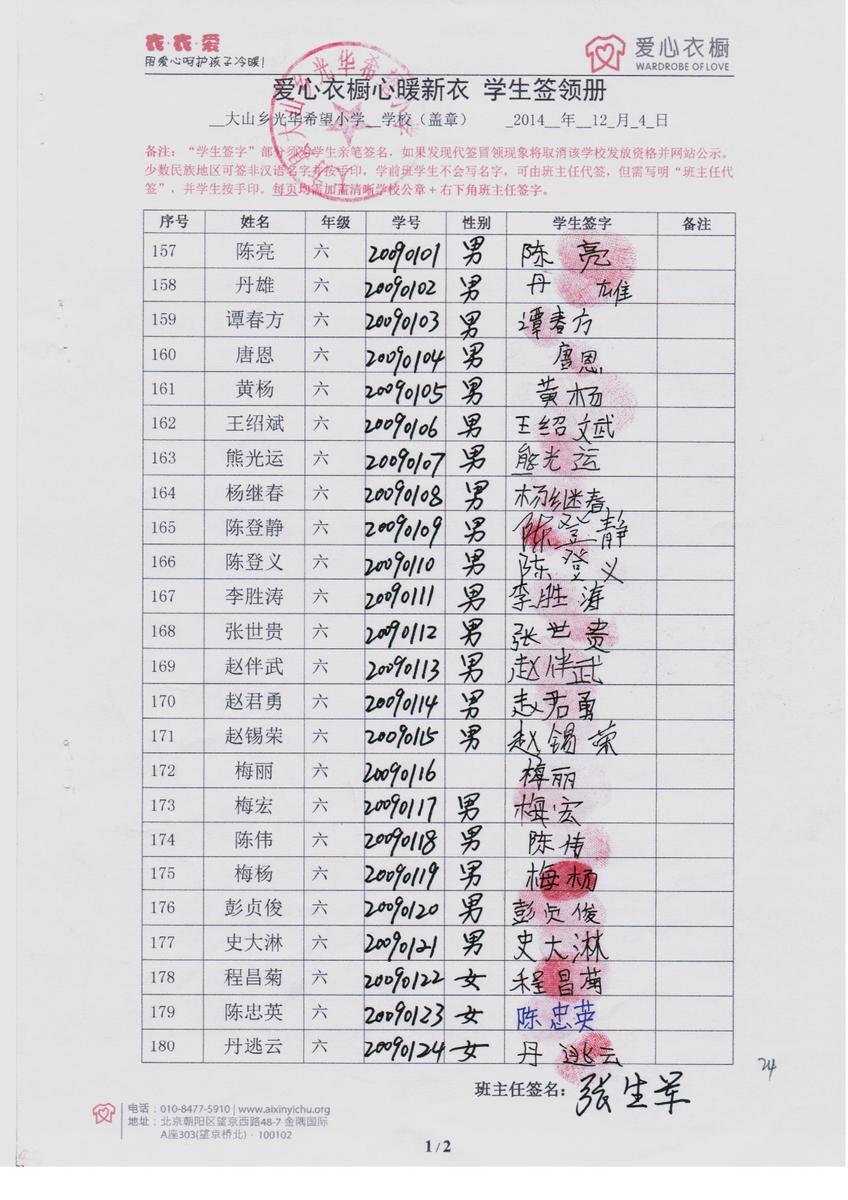 衣·衣·爱
用爱心呵护孩子冷暖!
爱心衣橱
WARDROBE OF LOVE
爱心衣橱心暖新衣 学生签领册
__大山乡光华希望小学__学校（盖章） _2014__年__12_月_4_日
备注：“学生签字”部分须为学生亲笔签名，如果发现代签冒领现象将取消该学校发放资格并网站公示。
少数民族地区可签非汉语名字并按手印，学前班学生不会写名字，可由班主任代签，但需写明“班主任代
签”，并学生按手印。每页均需加盖清晰学校公章+右下角班主任签字。
序号 姓名 年级 学号 性别 学生签字 备注
157 陈亮 六 20090101 男 陈亮
158 丹雄 六 20090102 男 丹雄
159 谭春方 六 20090103 男 谭春方
160 唐恩 六 20090104 男 唐恩
161 黄杨 六 20090105 男 黄杨
162 王绍斌 六 20090106 男 王绍斌
163 熊光运 六 20090107 男 熊光运
164 杨继春 六 20090108 男 杨继春
165 陈登静 六 20090109 男 陈登静
166 陈登义 六 20090110 男 陈登义
167 李胜涛 六 20090111 男 李胜涛
168 张世贵 六 20090112 男 张世贵
169 赵伴武 六 20090113 男 赵伴武
170 赵君勇 六 20090114 男 赵君勇
171 赵锡荣 六 20090115 男 赵锡荣
172 梅丽 六 20090116 梅丽
173 梅宏 六 20090117 男 梅宏
174 陈伟 六 20090118 男 陈伟
175 梅杨 六 20090119 男 梅杨
176 彭贞俊 六 20090120 男 彭贞俊
177 史大淋 六 20090121 男 史大淋
178 程昌菊 六 20090122 女 程昌菊
179 陈忠英 六 20090123 女 陈忠英
180 丹逃云 六 20090124 女 丹逃云
24
班主任签名：张生军
电话：010-8477-5910 | www.aixinyichu.org
地址：北京朝阳区望京西路48-7 金隅国际
A座303(望京桥北)·100102
1 / 2